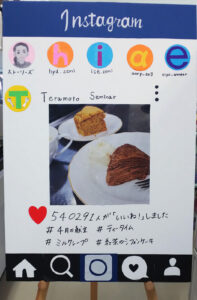 Instagram
h i a e
ストーリーズ
T
Teramoto Seminar
540291人が「いいね!」しました
#4月の献立 #ティータイム
#ミルクレープ #紅茶のシフォンケーキ